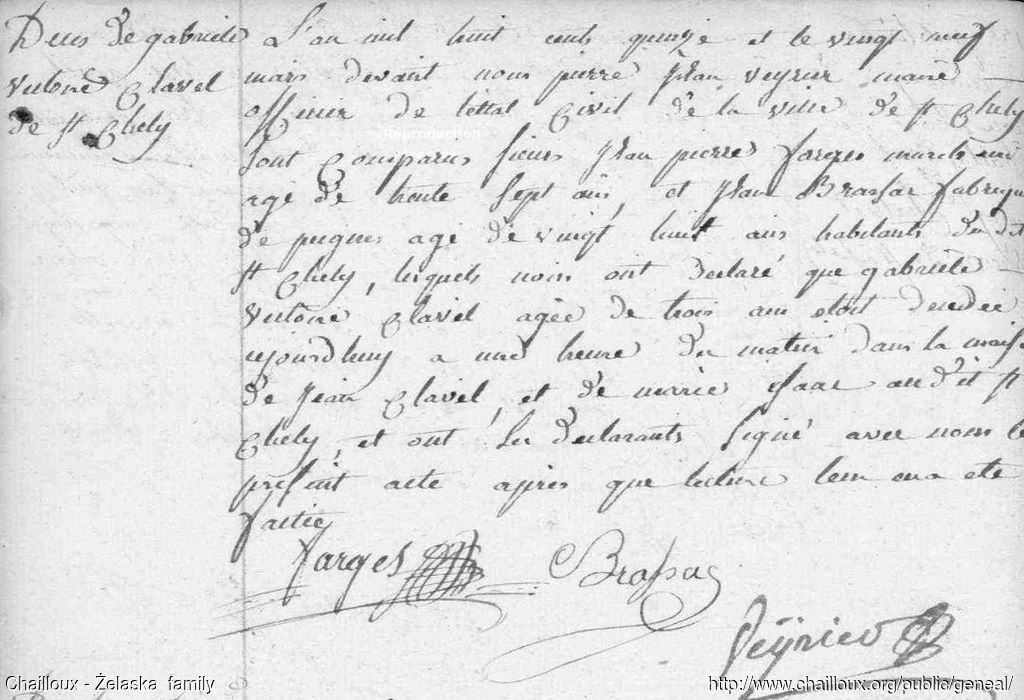 Deces de gabriele
victoire Clavel
de st Chely
L'an mil huit cents quinze et le vingt neuf
mars devant nous pierre jean veyrier maire
officier de lettat Civil de la ville de st Chely
sont comparus sieurs jean pierre farges marchand
age de trente sept ans, et jean Brassac fabriquant
de peignes age de vingt huit ans habitants du dit
st Chely, lesquels nous ont declaré que gabriele
victoire Clavel agée de trois ans etoit decedée
aujourdhuy a une heure du matin dans la maison
de jean Clavel, et de marie isaac audit st
Chely, et ont les declarants signé avec nous le
présent acte apres que lecture leur en a eté
faitte
farges
Brassac
Veyrier
Reproduction
Chailloux - Żelaska family
http://www.chailloux.org/public/geneal/